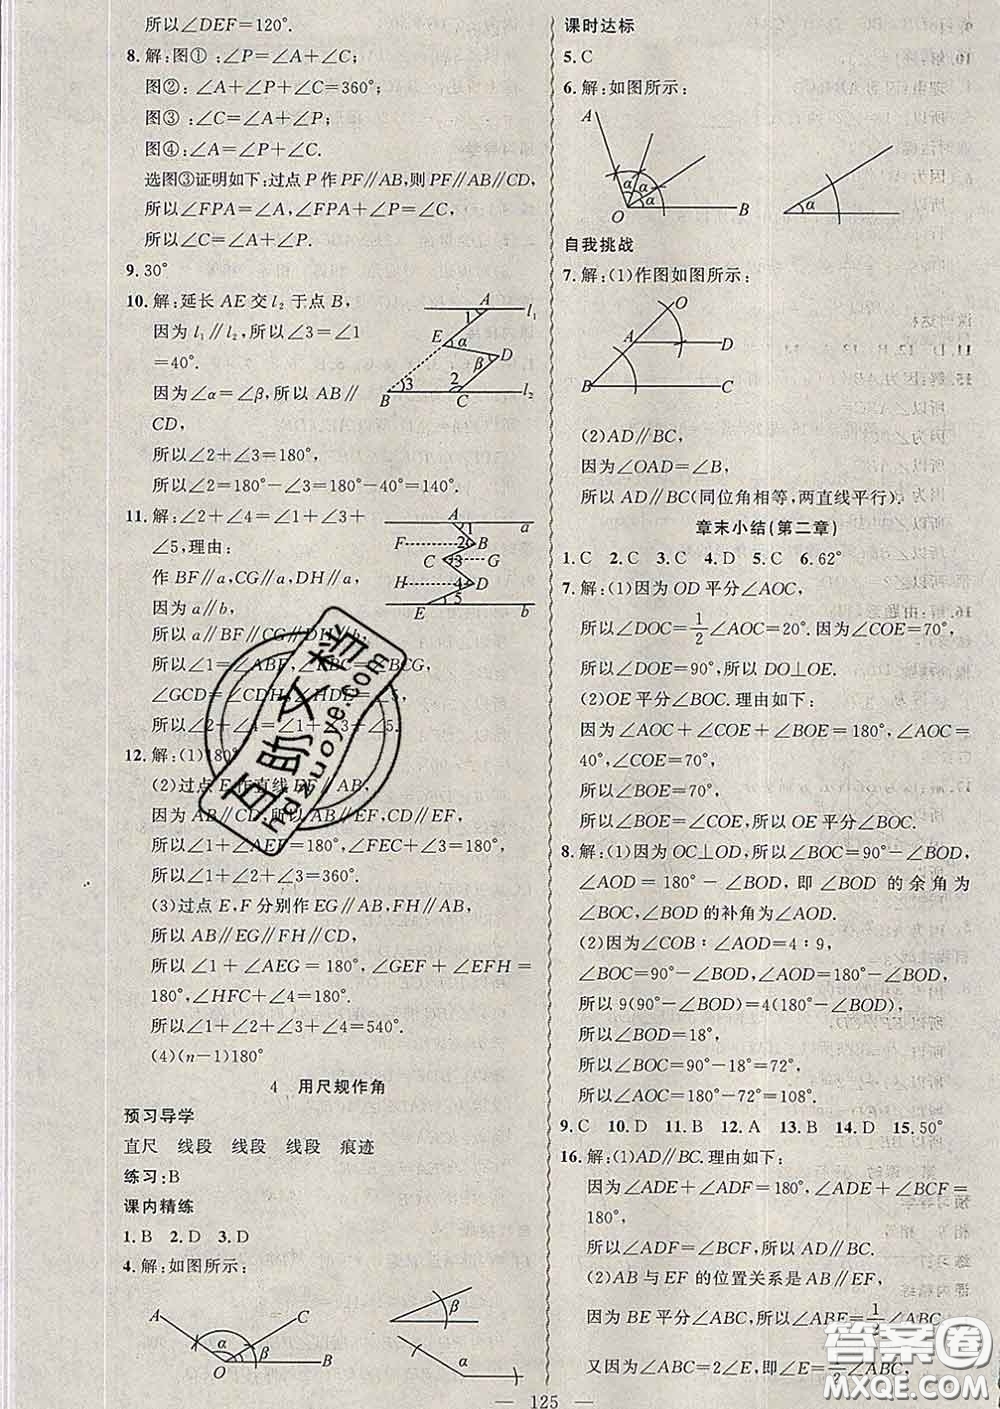 所以∠DEF=120°.
8.解:图①:∠P=∠A+∠C;
图②:∠A+∠P+∠C=360°;
图③:∠C=∠A+∠P;
图④:∠A=∠P+∠C.
选图③证明如下:过点P作PF∥AB,则PF∥AB∥CD,
所以∠FPA=∠A,∠FPA+∠P=∠C,
所以∠C=∠A+∠P.
9.30°
10.解:延长AE交l₂于点B,
因为l₁∥l₂,所以∠3=∠1
=40°.
因为∠α=∠β,所以AB∥
CD,
所以∠2+∠3=180°,
所以∠2=180°-∠3=180°-40°=140°.
A 1 l₁ E α D β 3 2 B C l₂
11.解:∠2+∠4=∠1+∠3+
∠5,理由:
作BF∥a,CG∥a,DH∥a,
因为a∥b,
所以a∥BF∥CG∥DH∥b,
所以∠1=∠ABF,∠FBC=∠BCG,
∠GCD=∠CDH,∠HDE=∠5,
所以∠2+∠4=∠1+∠3+∠5.
A 1 a F 2 B C 3 G H 4 D E 5 b
12.解:(1)180°
(2)过点E作直线EF∥AB,
因为AB∥CD,所以EF∥AB,CD∥EF,
所以∠1+∠AEF=180°,∠FEC+∠3=180°,
所以∠1+∠2+∠3=360°.
(3)过点E,F分别作EG∥AB,FH∥AB,
所以AB∥EG∥FH∥CD,
所以∠1+∠AEG=180°,∠GEF+∠EFH=
180°,∠HFC+∠4=180°,
所以∠1+∠2+∠3+∠4=540°.
(4)(n-1)180°
4 用尺规作角
预习导学
直尺 线段 线段 线段 痕迹
练习:B
课内精练
1.B 2.D 3.D
4.解:如图所示:
A C α O B β β
课时达标
5.C
6.解:如图所示:
A α α α O B α
自我挑战
7.解:(1)作图如图所示:
O A D B C
(2)AD∥BC,
因为∠OAD=∠B,
所以AD∥BC(同位角相等,两直线平行).
章末小结(第二章)
1.C 2.C 3.C 4.D 5.C 6.62°
7.解:(1)因为OD平分∠AOC,
所以∠DOC=1/2∠AOC=20°.因为∠COE=70°,
所以∠DOE=90°,所以DO⊥OE.
(2)OE平分∠BOC.理由如下:
因为∠AOC+∠COE+∠BOE=180°,∠AOC=
40°,∠COE=70°,
所以∠BOE=70°,
所以∠BOE=∠COE,所以OE平分∠BOC.
8.解:(1)因为OC⊥OD,所以∠BOC=90°-∠BOD,
∠AOD=180°-∠BOD,即∠BOD的余角为
∠BOC,∠BOD的补角为∠AOD.
(2)因为∠COB∶∠AOD=4∶9,
∠BOC=90°-∠BOD,∠AOD=180°-∠BOD,
所以9(90°-∠BOD)=4(180°-∠BOD),
所以∠BOD=18°,
所以∠BOC=90°-18°=72°,
所以∠AOC=180°-72°=108°.
9.C 10.D 11.B 12.A 13.B 14.D 15.50°
16.解:(1)AD∥BC.理由如下:
因为∠ADE+∠ADF=180°,∠ADE+∠BCF=
180°,
所以∠ADF=∠BCF,所以AD∥BC.
(2)AB与EF的位置关系是AB∥EF,
因为BE平分∠ABC,所以∠ABE=1/2∠ABC.
又因为∠ABC=2∠E,即∠E=1/2∠ABC,
— 125 —
自助文档
hdzuoye.com
答案圈
MXQE.COM